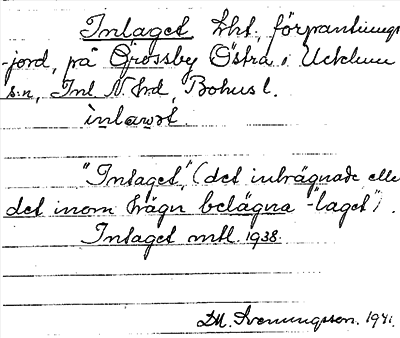 Intaget lht., förpantnings
-jord, på Grossby Östra i Ucklum
s:n, Inl. N. hrd, Bohusl.
"Intaget" (det inhägnade elle
det inom hägn belägna "taget").
Intaget mtl. 1938.
D.M. Svenungsson. 1941.